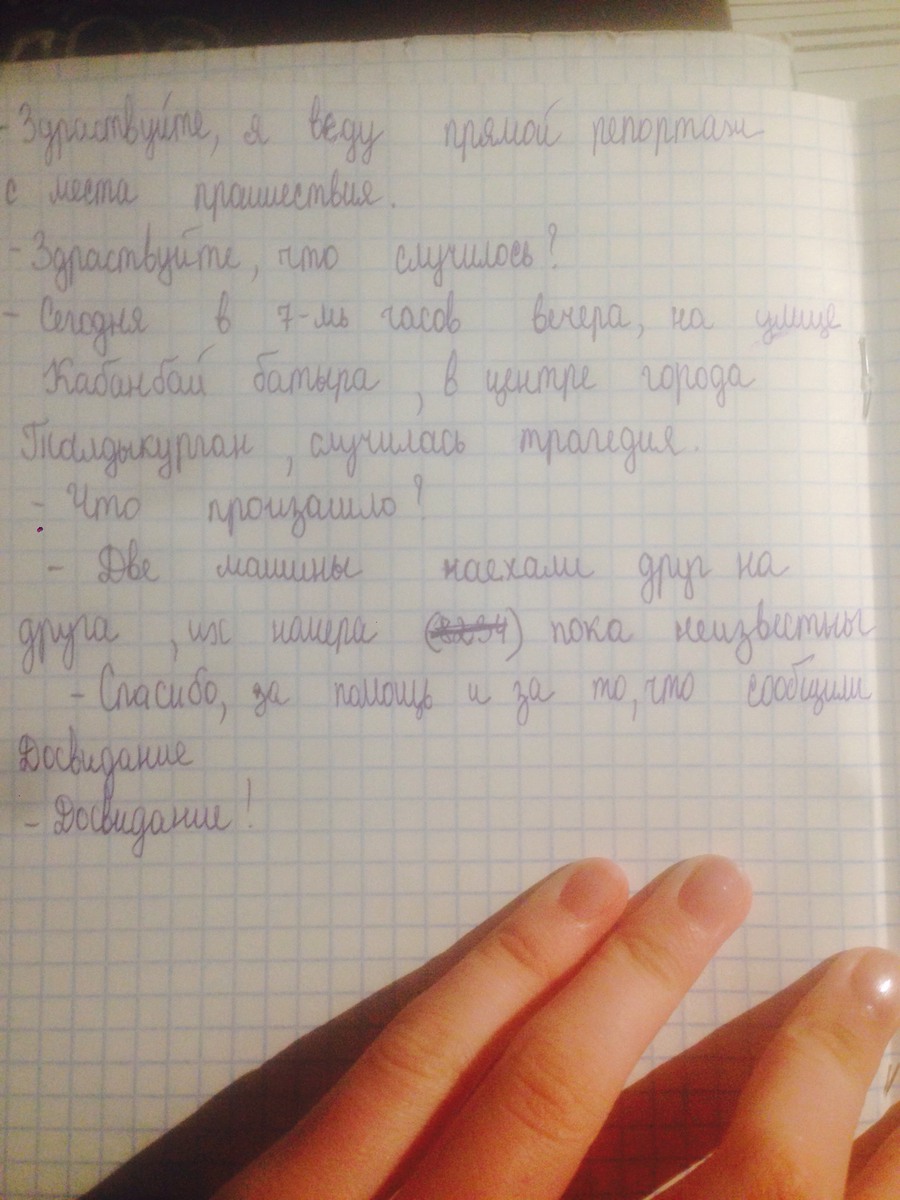 - Здраствуйте, я веду прямой репортаж
с места праишествия.
- Здраствуйте, что случилось?
- Сегодня в 7-мь часов вечера, на улице
Кабанбай батыра, в центре города
Талдыкурган, случилась трагедия.
- Что произашло?
- Две машины наехали друг на
друга, их намера (8294) пока неизвестны
- Спасибо, за помощь и за то, что сообщили
Досвидание
- Досвидание!